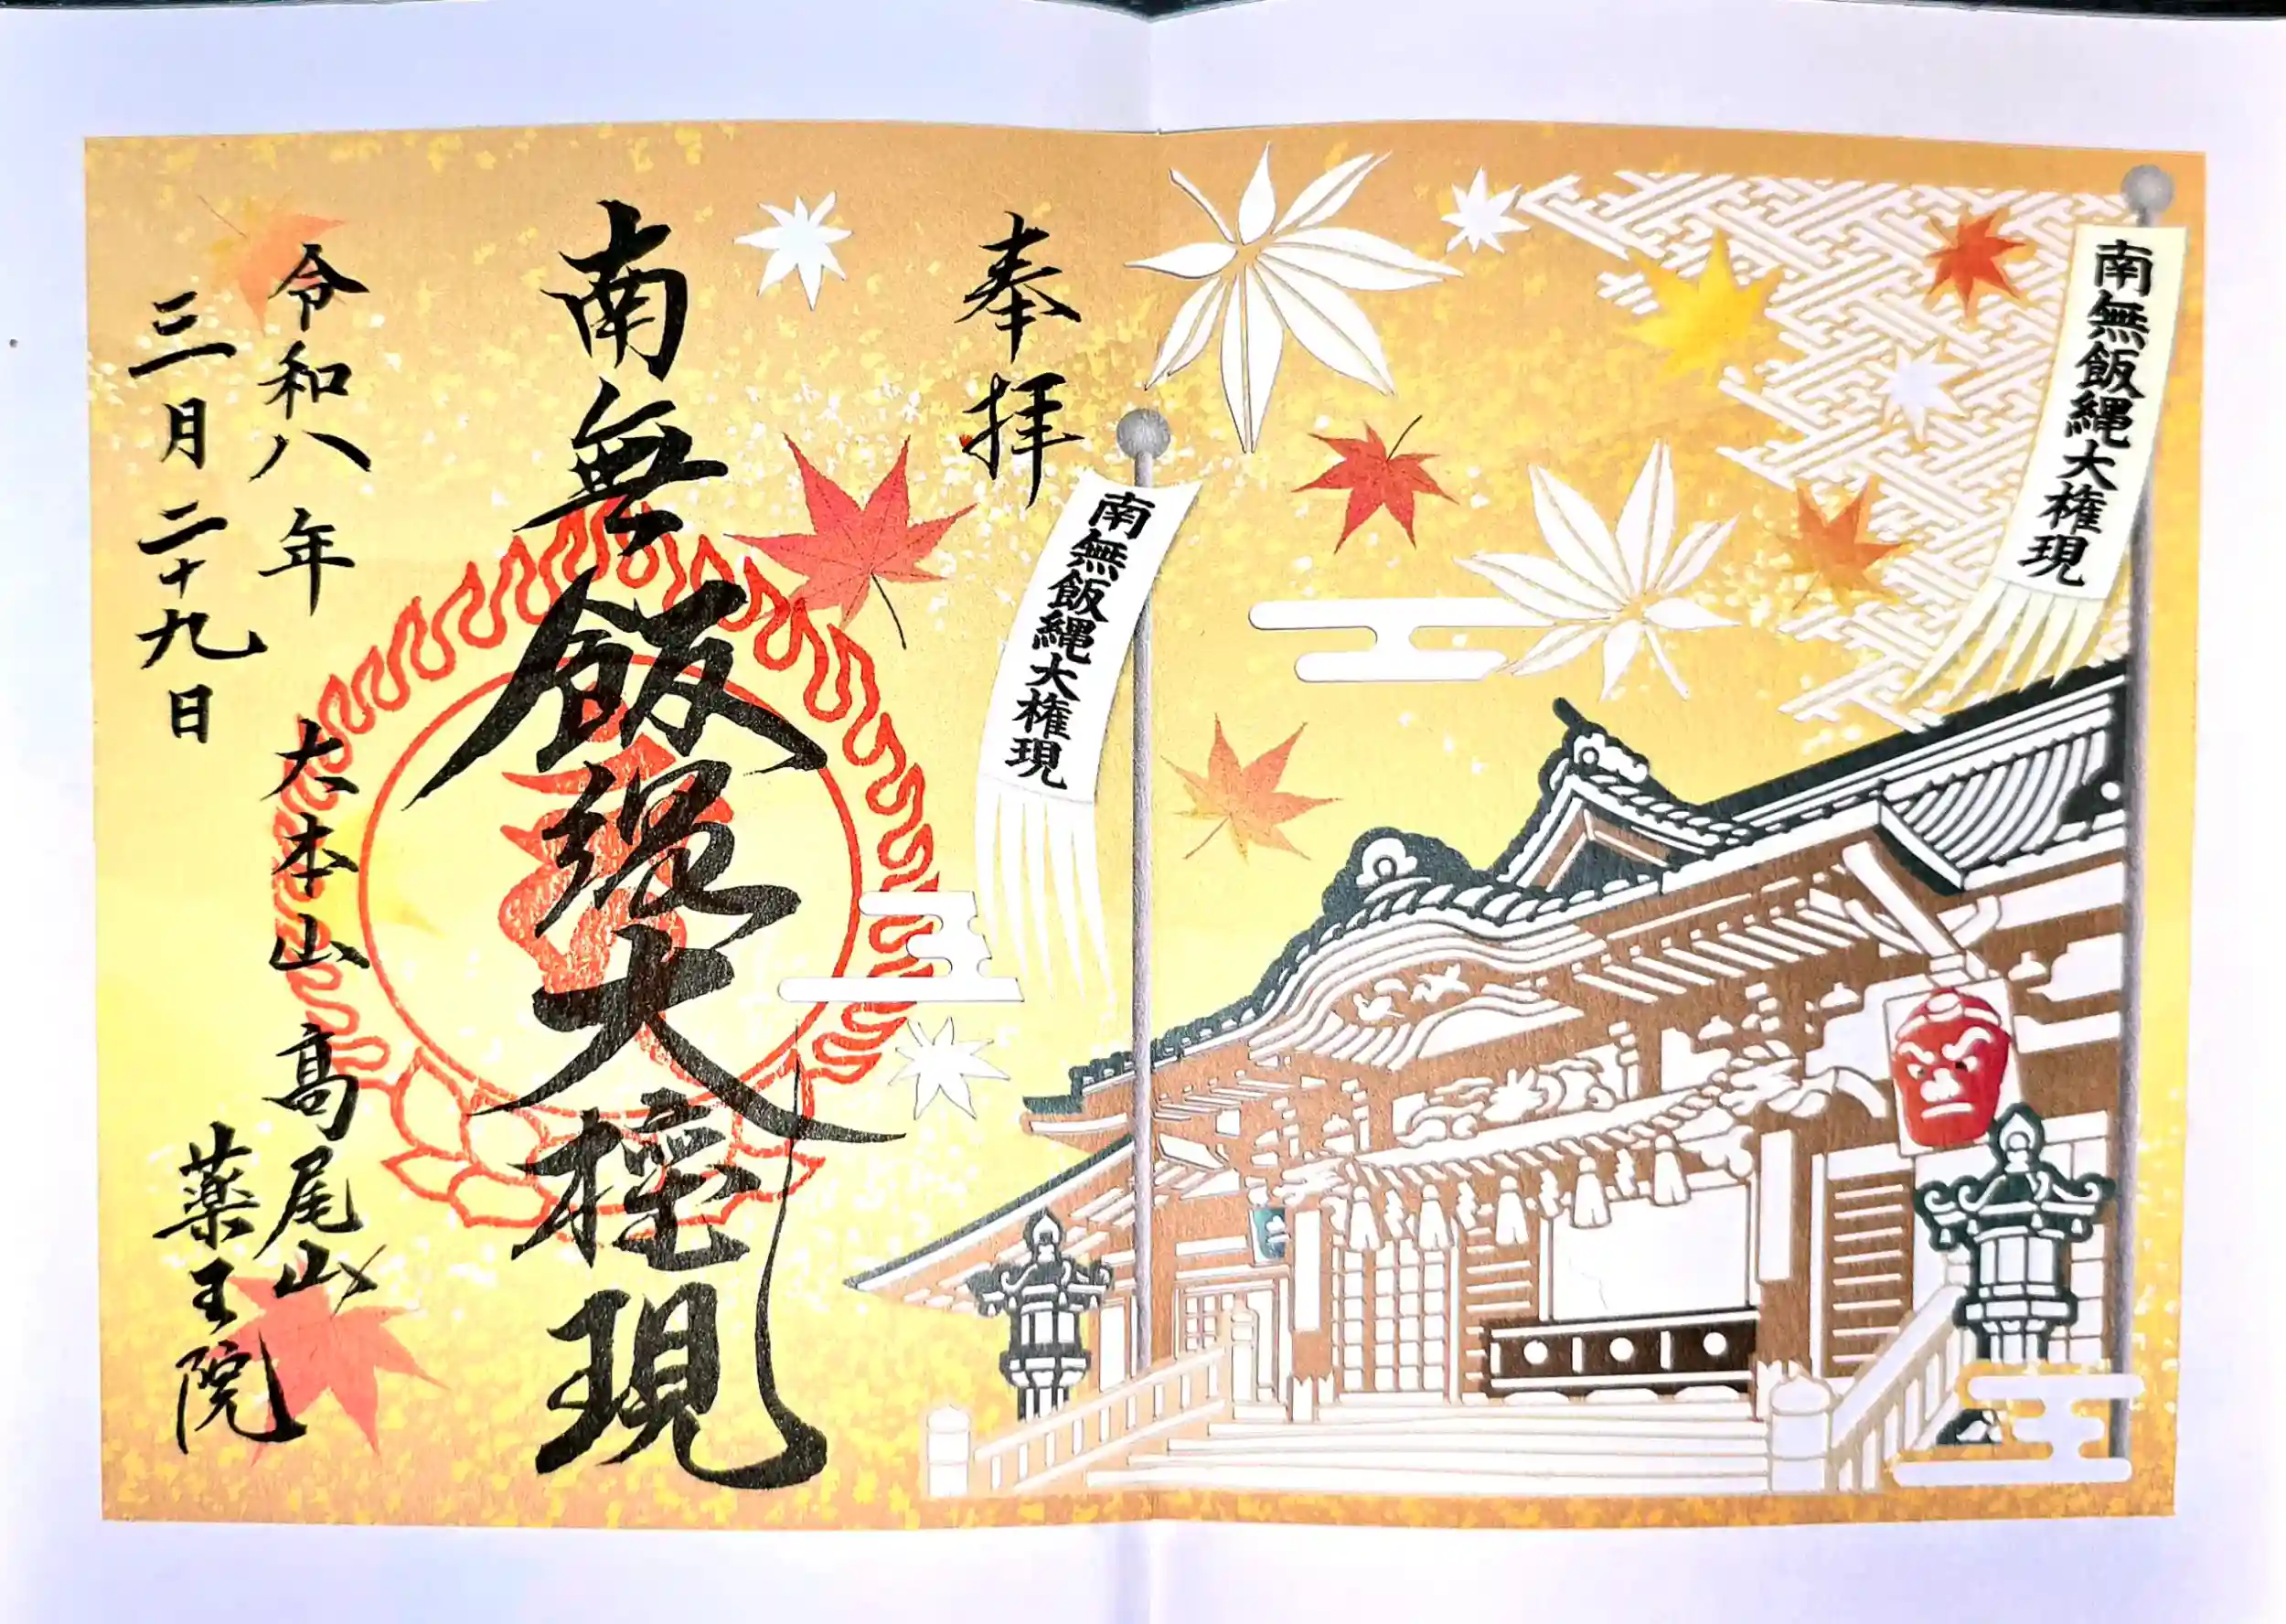 南無飯縄大権現
南無飯縄大権現
奉拝
南無飯縄大権現
令和八年
三月二十九日
大本山高尾山
薬王院